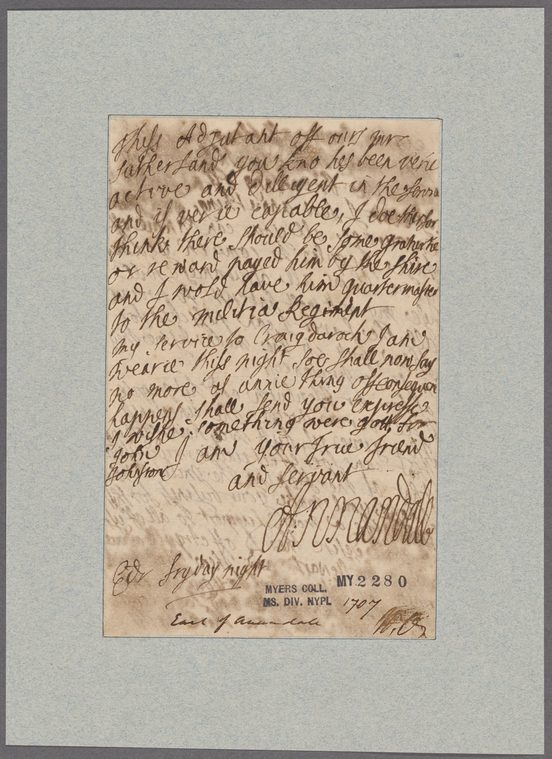 This Adjutant off ours Mr
Sutherland you kno hes been verie
active and diligent in the servi
and is verie capiable, I doe therfor
thinke there should be some
or reward payed him by the shire
and I wold have him quartermaster
to the militia Regiment
my service to Craigdaroch I am
wearie this night soe shall nou say
no more if annie thing off consequen
happens shall send you express
I wishe something were gott for
John I am your true friend
Johnston
and servant
Annandale
Edr fryday night
MYERS COLL.
MS. DIV. NYPL
MY 2280
1707
Earl of Annandale